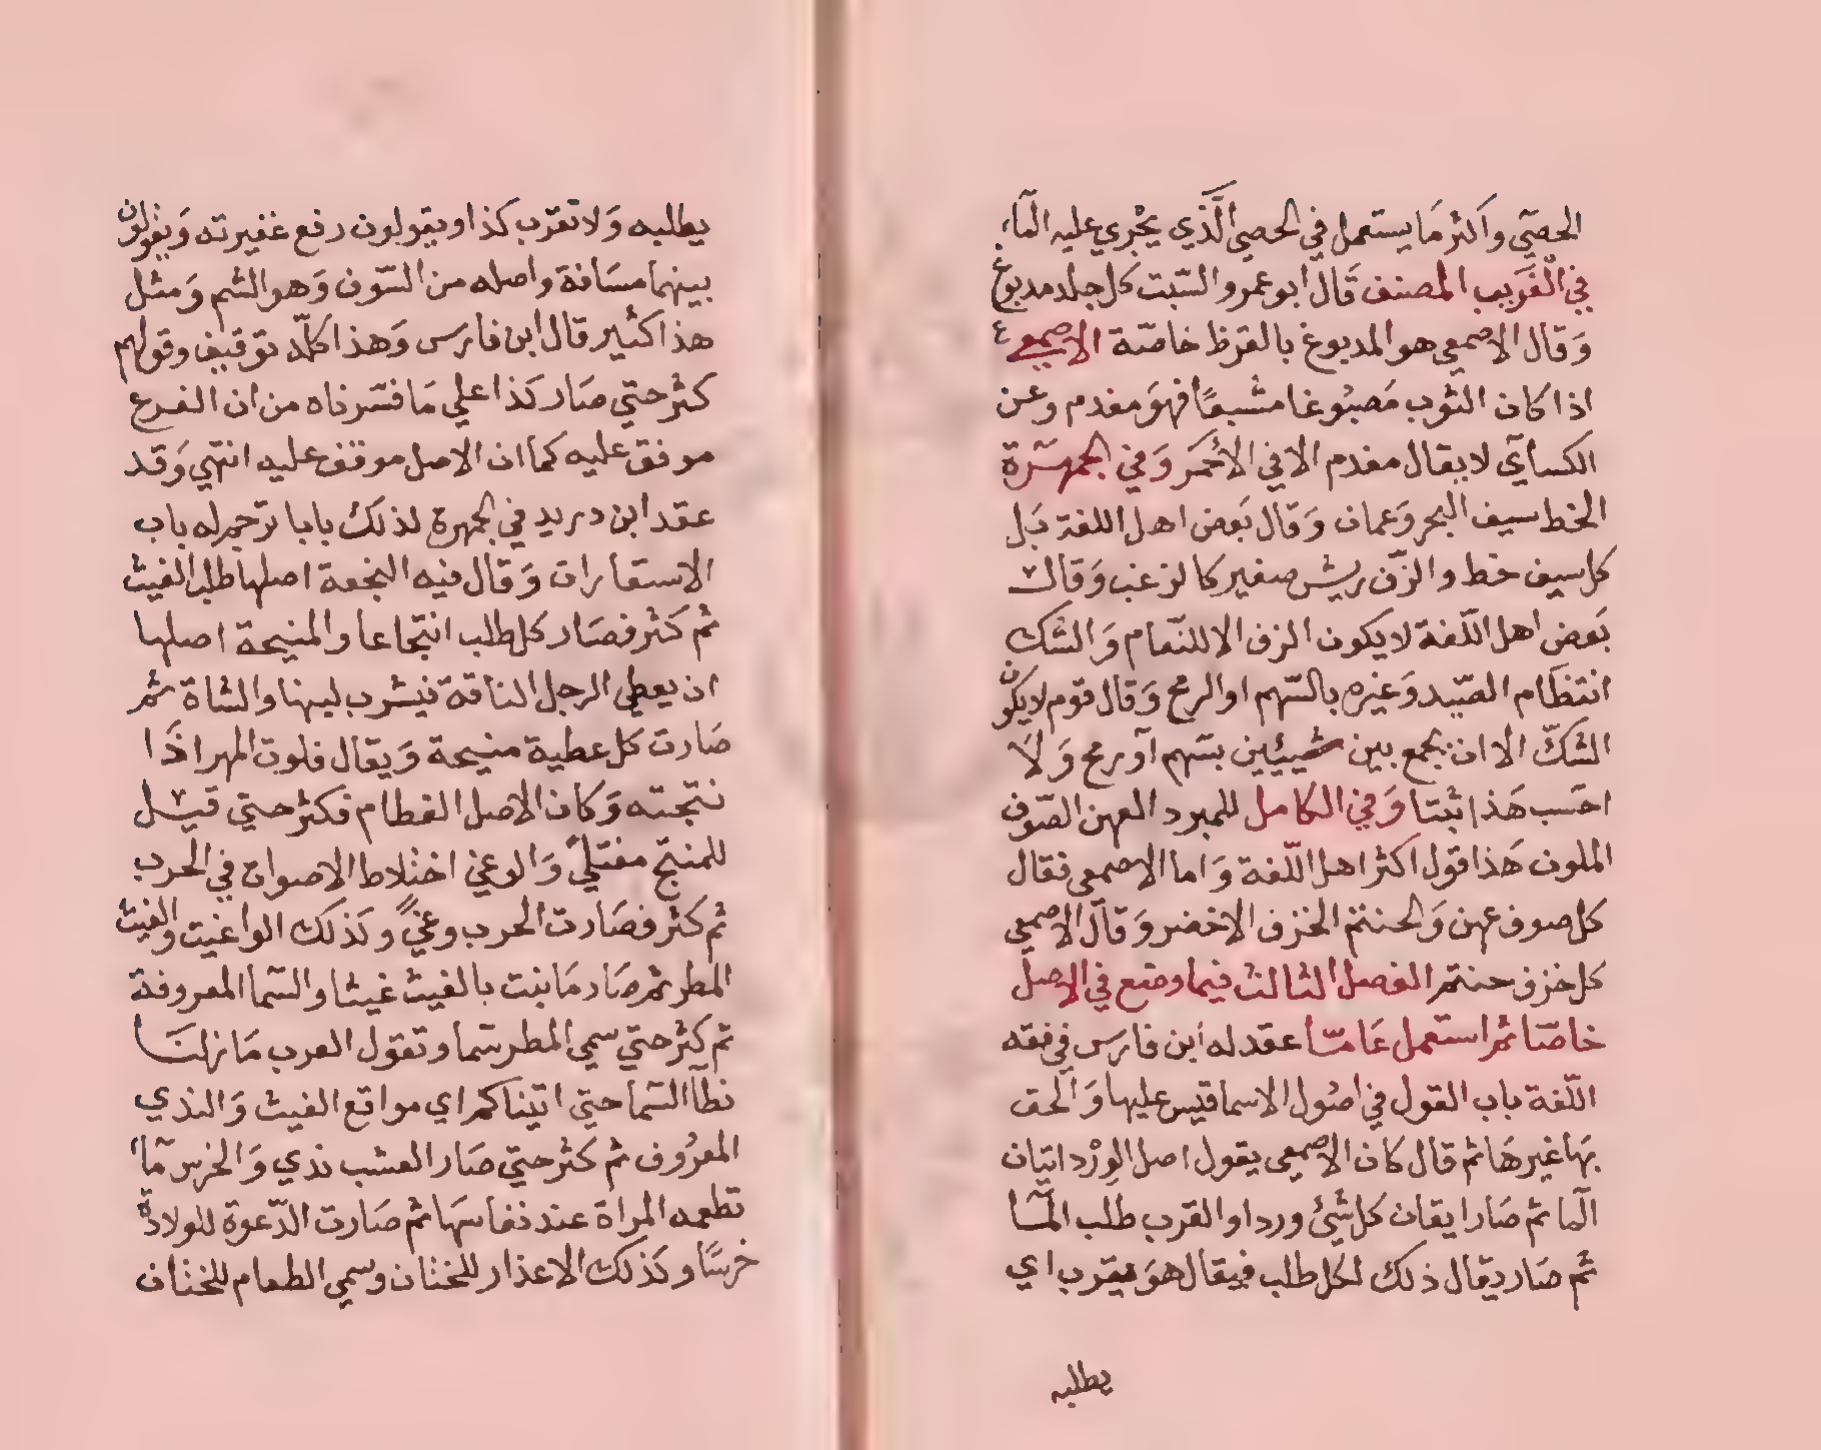 الحصي واكثر مَا يستعمل في الحصي الَّذي يجْري عليه المآء
في الغَريب المصنف قَال ابو عمرو السّبت كل جلد مدبوغ
وَقال الاصمعي هو المدبوغ بالقرظ خاصّة الاصمعي
اذا كان الثوب مَصبُوغا مشبعًا فهوَ مفدم وعن
الكسآي لا يقال مفدم الا في الأحْمَر وَفي الجمهرة
الخط سيف البحر وَعمان وَقال بَعض اهل اللغة بَل
كل سيف خط والزّف ريش صغير كالزغب وَقال
بَعض اهل اللّغة لا يكون الزف الا للنّعام وَالشك
انتظَام الصّيد وَغيره بالسّهم او الرمح وَقال قوم لا يكون
الشكّ الا ان يجمع بين شيييين بسَهم آو رمح وَلَا
احسَب هَذا ثبتا وَفي الكامل للمبرد العهن الصّوف
الملون هَذا قول اكثر اهل اللّغة وَاما الاصمعي فقال
كل صوف عهن وَالحنتم الخزف الاخضر وَقال الاصمعي
كل خزف حنتم الفصل الثالث فيما وضع في الاصل
خاصّا ثم استعمل عَامّا عقد له ابن فارس في فقه
اللّغة باب القول في اصُول الاسما قيس عليها وَالحق
بهَا غيرهَا ثم قال كان الاصمعي يقول اصل الوِرْد اتيان
المآ ثم صَار ايقان كل شَيْء وردا والقرب طلب المآ
ثم صَار يقال ذلك لكل طلب فيقال هوَ يقرب اي
يطلبه
يطلبه وَلا تقرب كذا ويقولون رفع عقيرته وَيقولون
بينهما مسَافة واصله من السّوف وَهو الشم وَمثل
هذا كثير قال ابن فارس وَهذا كلّه توقيف وقولهم
كثر حتي صَار كذا علي مَا فسّرناه من ان الفرع
موفق عليه كما ان الاصل موقف عليه انتهي وَقد
عقد ابن دريد في الجمهرة لذلك بابا ترجم له باب
الاستعارات وَقال فيه النجعة اصلها طلب الغيث
ثم كَثر فصَار كل طلب انتجاعا والمنيحة اصلها
ان يعطي الرجل الناقة فيشرب لبنها والشاة ثم
صَارت كل عطية منيحة وَيقال فلوت المهر اذَا
نتجته وَكان الاصل الفطام فكثر حتي قيل
للمنتج مفتليً وَالوغي اختلاط الاصوات في الحرب
ثم كثر فصَارت الحرب وغيً وكذلك الواغيت والغيث
المطر ثم صَار مَا نبت بالغيث غيثا والسّما المعروفة
ثم كثر حتي سمي المطر سَما وتقول العرب مَا زلنَا
نطآ السّما حتي اتيناكم اي مواقع الغيث وَالندي
المعرُوف ثم كثر حتيّ صَار العشب ندي وَالخرس مآ
تطعمه المراة عند نفاسهَا ثم صَارت الدّعوة للولادة
خرسًا وكذلك الاعذار للختان وسمي الطعام للختان